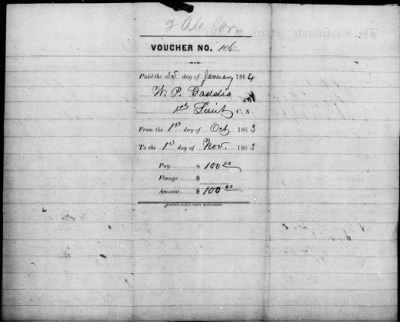 2 Ala Cav
VOUCHER NO. 106
Paid the day of January 1864
W. P. Gaddis
1st Lieut C. S.
From the 1st day of Oct 1863
To the 1st day of Nov. 1863
Pay $ 100 00
Forage $
Amount $ 100 00